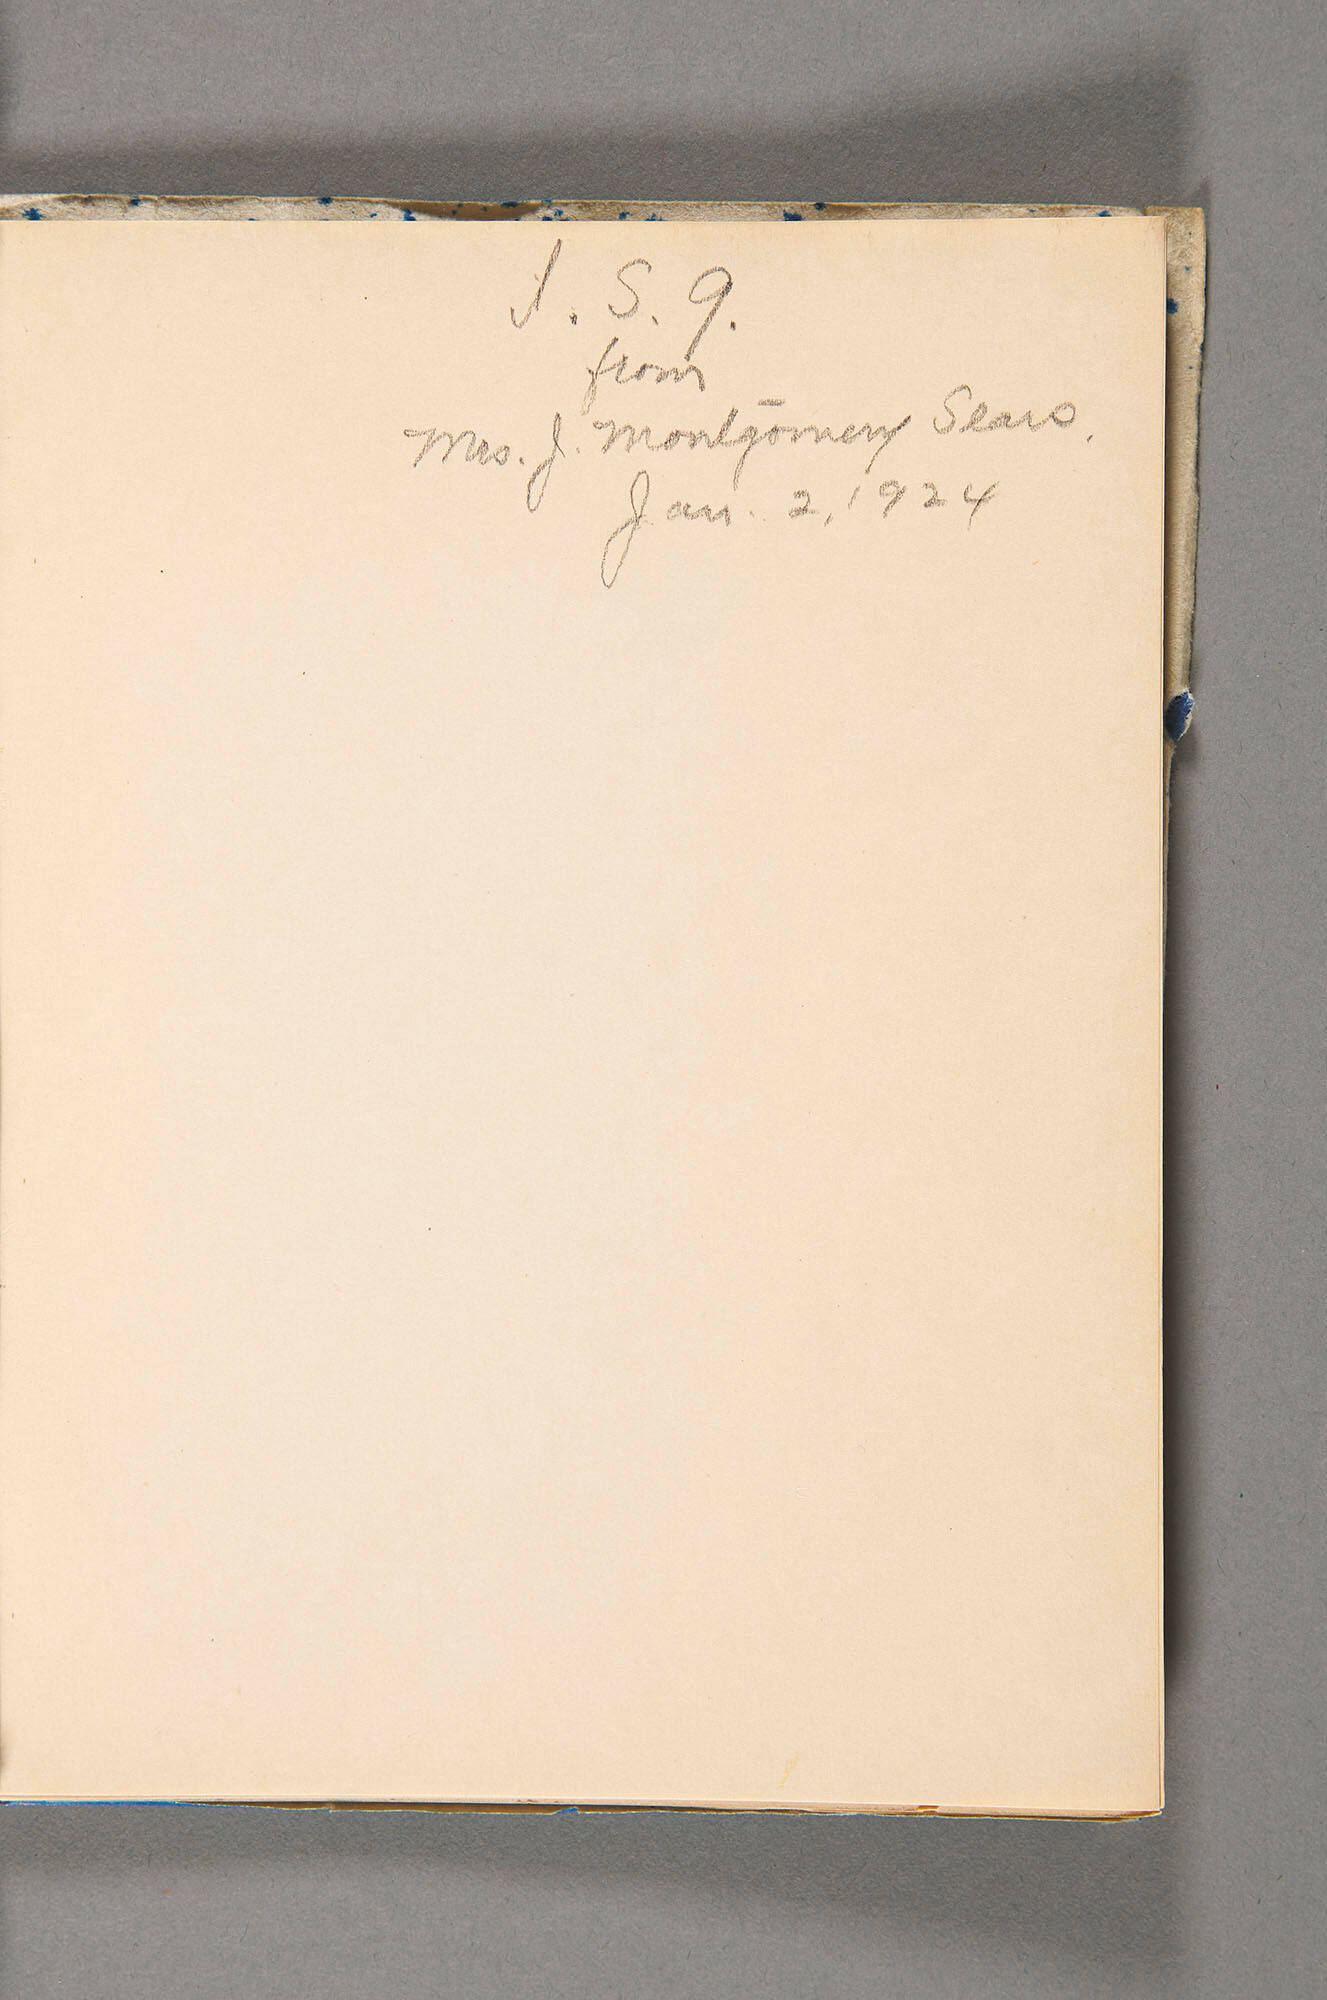 I. S. G.
from
Mrs. J. Montgomery Sears.
Jan. 2, 1924